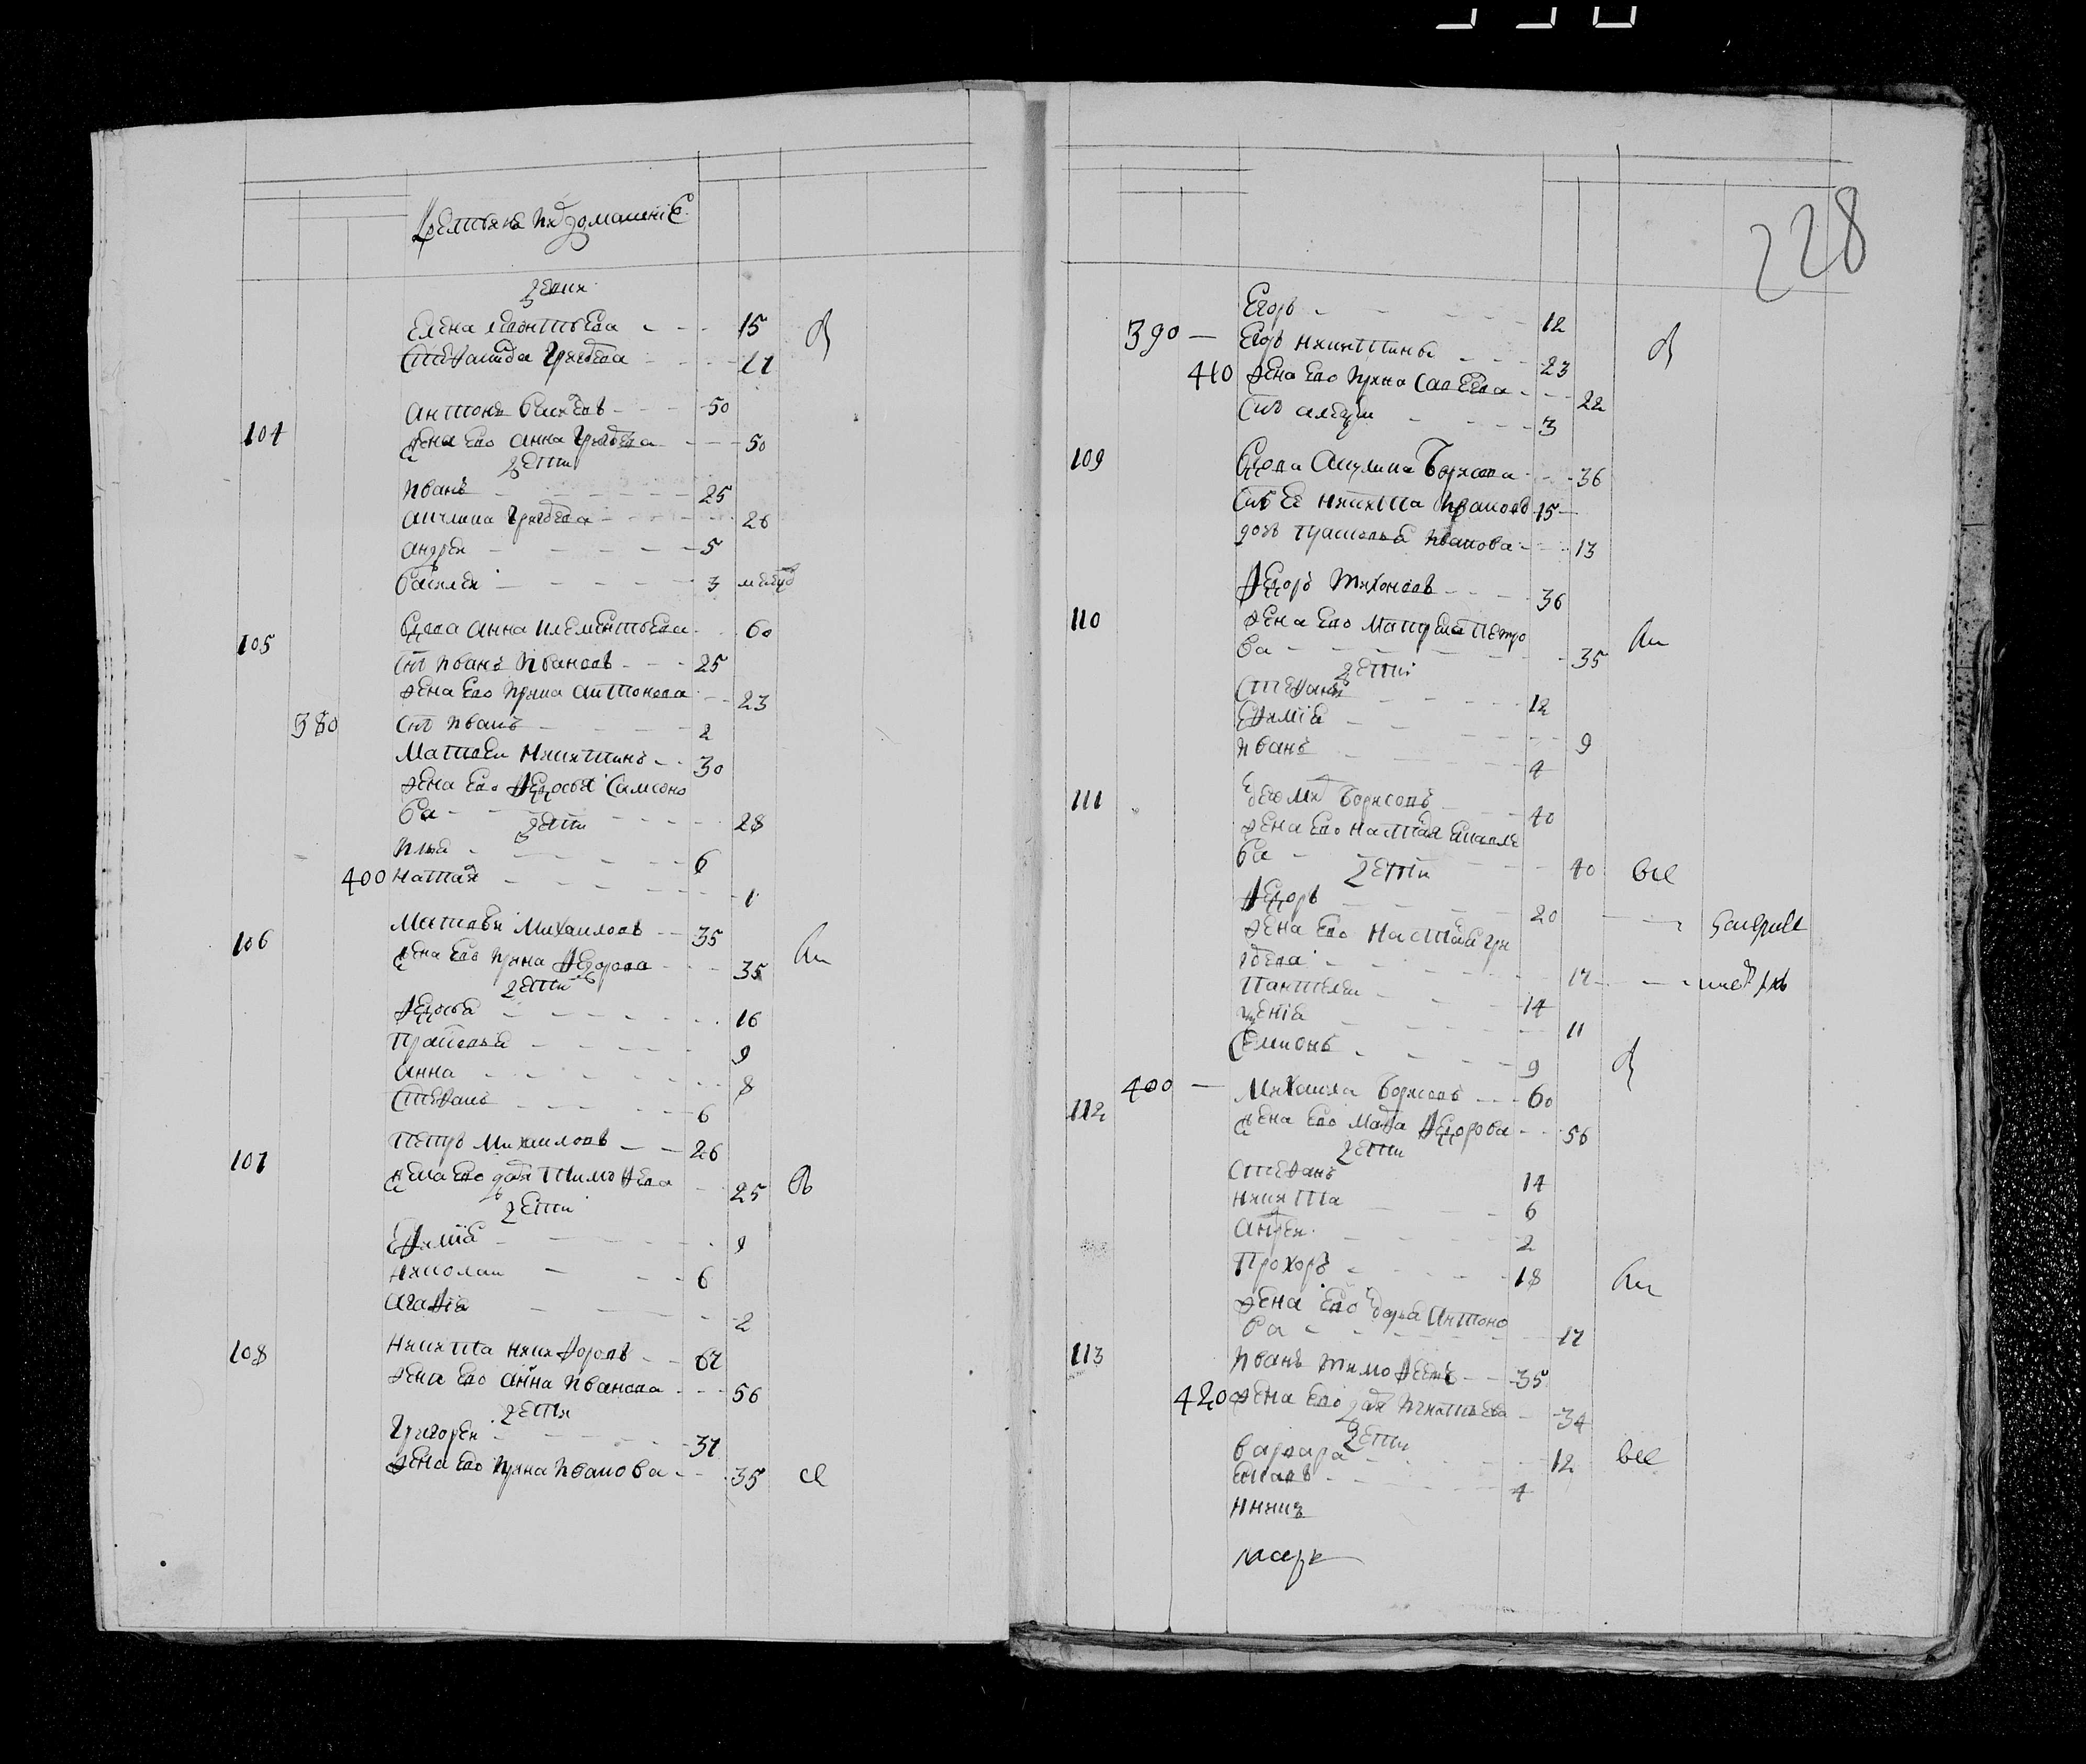 Крестьяне и их домашние
дети
Елена Леонтьева 15
Степанида Григорьева 11
104 Антонъ Васильевъ 50
жена ево Анна Григорьева 50
дети
Иванъ 25
Акулина Григорьева 26
Андрей 5
Василей 3
105 вдова Анна Климентьева 60
снъ Иванъ Ивановъ 25
жена ево Ирина Антонова 23
380 снъ Иванъ 2
Матвей Никитинъ 30
жена ево Федосья Самсоно
ва 28
дети
Илья 6
400 Настася 1
106 Матвей Михаиловъ 35
жена ево Ирина Федорова 35
дети
Федосья 16
Прасковья 9
Анна 8
Степанъ 6
107 Петръ Михаиловъ 26
жена ево Дарья Тимофеева 25
дети
Ефимия 9
Николай 6
Агафия 2
108 Никита Никифоровъ 67
жена ево Анна Иванова 56
дети
Григорей 37
жена ево Ирина Иванова 35
228
Егоръ 12
390 Егоръ Никитинъ 23
410 жена ево Ирина Савельева 22
снъ Алексей 3
109 вдова Акулина Борисова 36
снъ ее Никита Ивановъ 15
дочь Прасковья Иванова 13
110 Федоръ Тихоновъ 36
жена ево Матрена Петро
ва 35
дети
Степанъ 12
Ефимия 9
Иванъ 4
111 Борисовъ 40
жена ево Настасья Яковле
ва 40 все
дети
Федоръ 20
жена ево Настасья Гри
горьева 17
Пантелей 14
Ксения 11
Семионъ 9
400
112 Михаила Борисовъ 60
жена ево Марфа Федорова 56
дети
Степанъ 14
Никита 6
Андрей 2
Прохоръ 18
жена ево Дарья Антоно
ва 17
113 Иванъ Тимофеевъ 35
420 жена ево Дарья Игнатьева 34
дети
Варвара 12 все
Яковъ 4